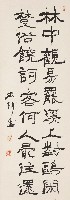 林中觀易罷溪上對鷗閒
楚俗饒詞客何人最往還